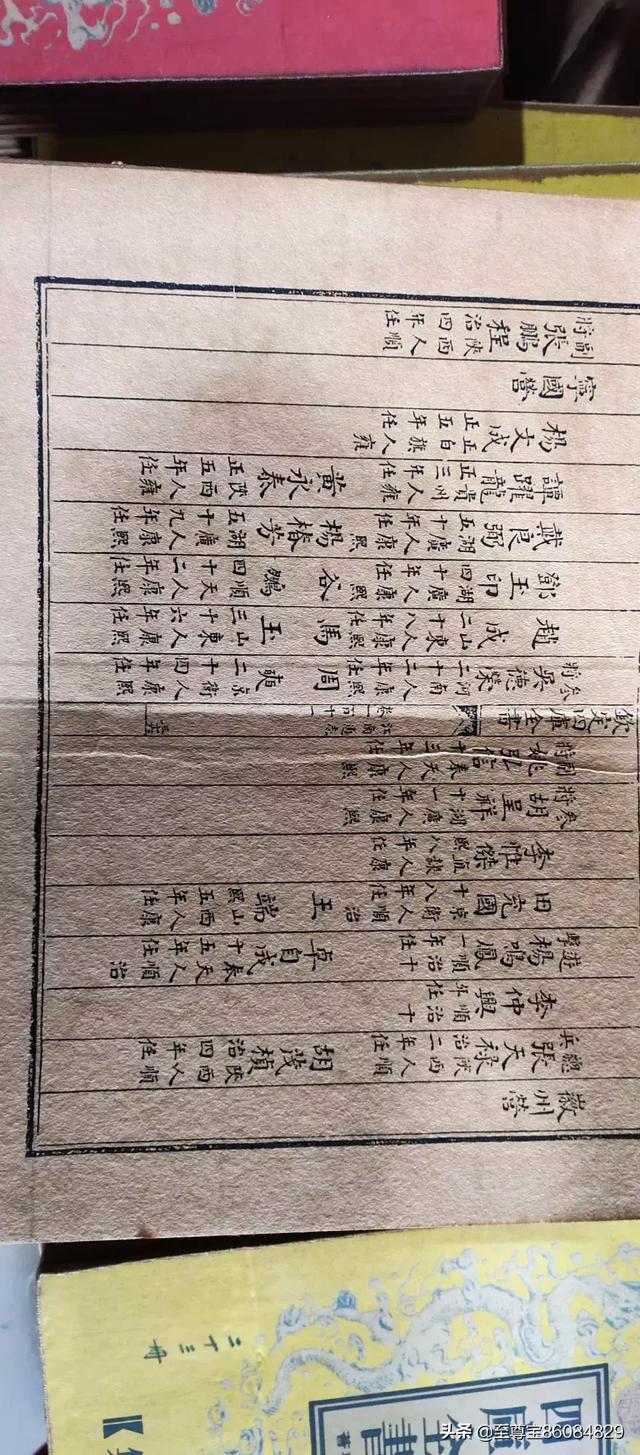 徽州營
總兵張天祿陝西人順治二年任 胡茂楨陝西人順治四年任
李仲興順治十年任
遊擊楊鳴鳳順治十一年任 卓自成奉天人順治十五年任
田克國京衛人順治十八年任 王端山西人康熙五年任
李惟傑直隸人康熙八年任
叅將胡呈祥湖廣人康熙十一年任
副將姚弘信奉天人康熙十三年任
欽定四庫全書 江南通志卷一百十一
叅將吳德榮河南人康熙二十年任 周爽京衛人康熙二十四年任
趙成山東人康熙二十八年任 馬玉山東人康熙三十六年任
鄧玉印湖廣人康熙四十年任 谷順天人康熙四十二年任
戴良弼湖廣人康熙五十年任 楊椿芳湖廣人康熙五十九年任
譚躍龍貴州人雍正三年任 黃永泰陝西人雍正五年任
楊文成正白旗人雍正五年任
寧國營
副將張鵬程陝西人順治四年任
二十三冊
四庫全書
頭条 @至尊宝86084829